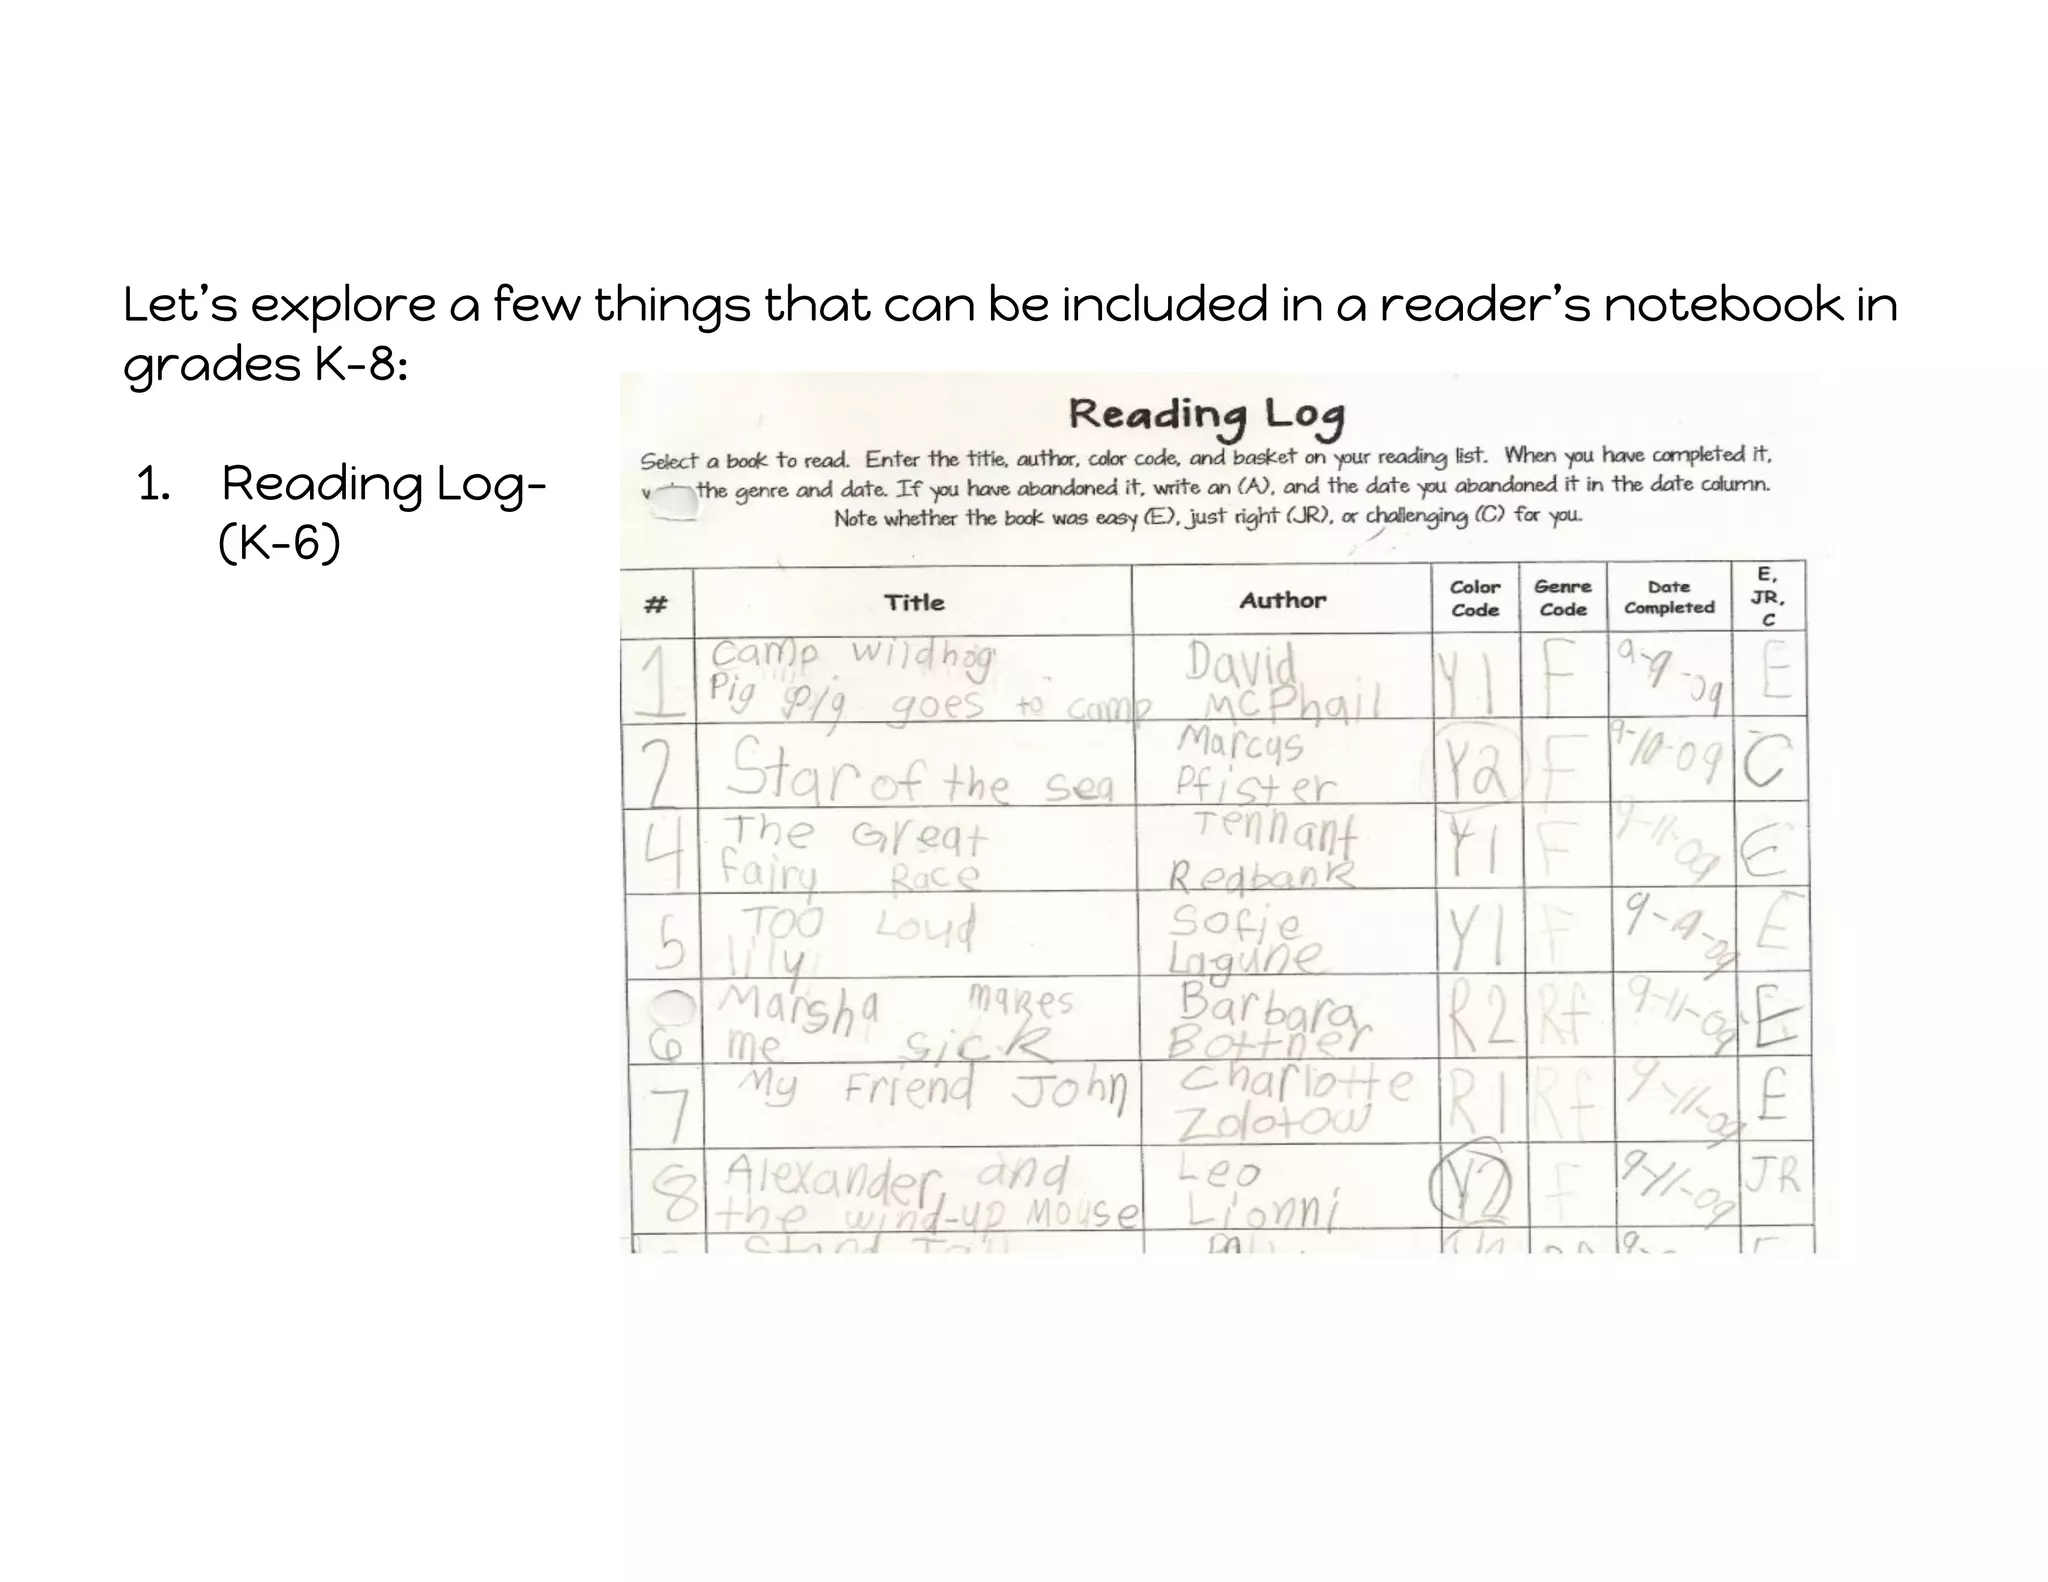 Let's explore a few things that can be included in a reader's notebook in
grades K-8:
1. Reading Log-
(K-6)
Reading Log
Select a book to read. Enter the title, author, color code, and basket on your reading list. When you have completed it,
the genre and date. If you have abandoned it, write an (A), and the date you abandoned it in the date column.
Note whether the book was easy (E), just right (JR), or challenging (C) for you.
# Title Author Color Code Genre Code Date Completed E, JR, C
1 Camp Wildhog Pig Pig goes to camp David McPhail Y1 F 9-9-09 E
2 Star of the sea Marcus Pfister Y2 F 9-10-09 C
4 The Great Fairy Race Tennant Redbank Y1 F 9-11-09 E
5 TOO Loud lily Sofie Lagune Y1 F 9-9-09 E
6 Marsha makes me sick Barbara Bottner R2 Rf 9-11-09 E
7 My Friend John Charlotte Zolotow R1 Rf 9-11-09 E
8 Alexander, and the wind-up Mouse Leo Lionni Y2 F 9-11-09 JR